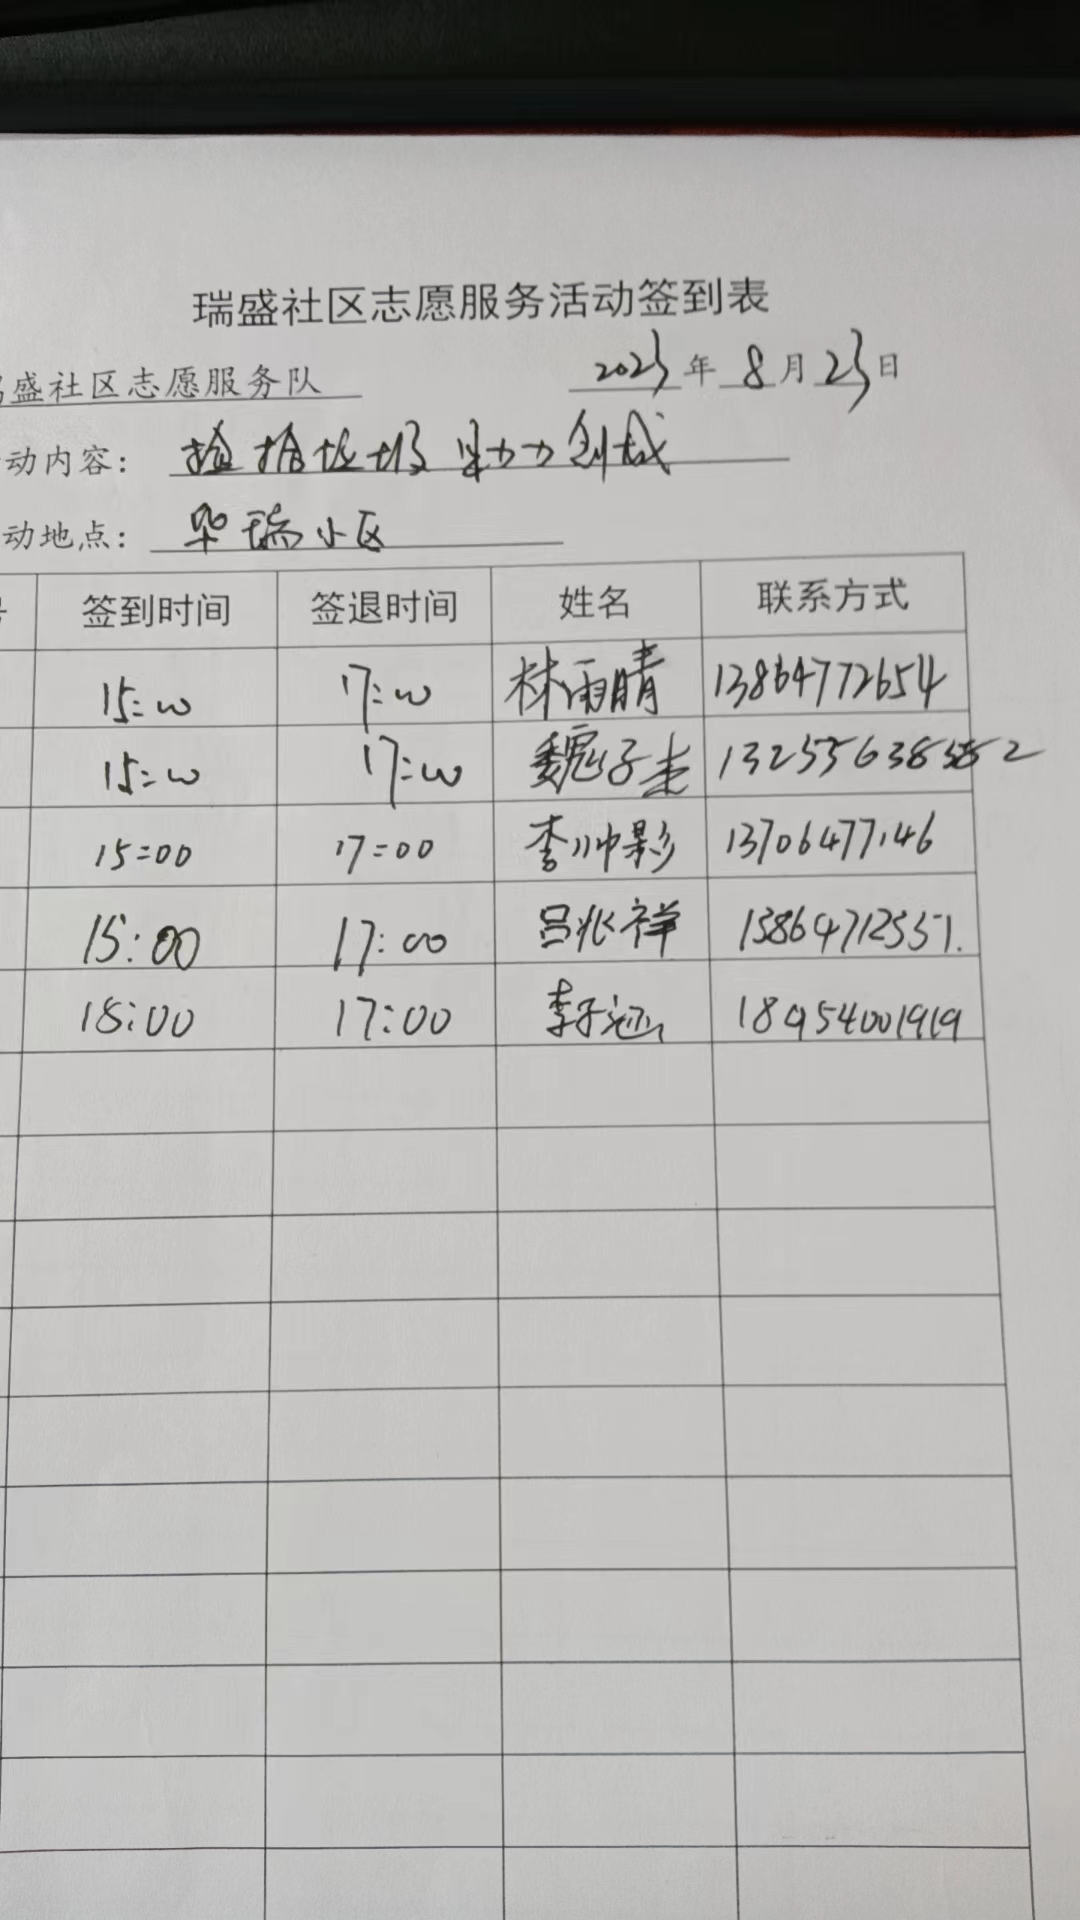 瑞盛社区志愿服务活动签到表
盛社区志愿服务队 2023年8月23日
动内容：捡拾垃圾 助力创城
动地点：华瑞小区
号 签到时间 签退时间 姓名 联系方式
15:00 17:00 林雨晴 13864772654
15:00 17:00 魏子圭
15:00 17:00 李帅影 13706477146
15:00 17:00 吕兆祥 15864712551.
18:00 17:00 李子涵 18954001919